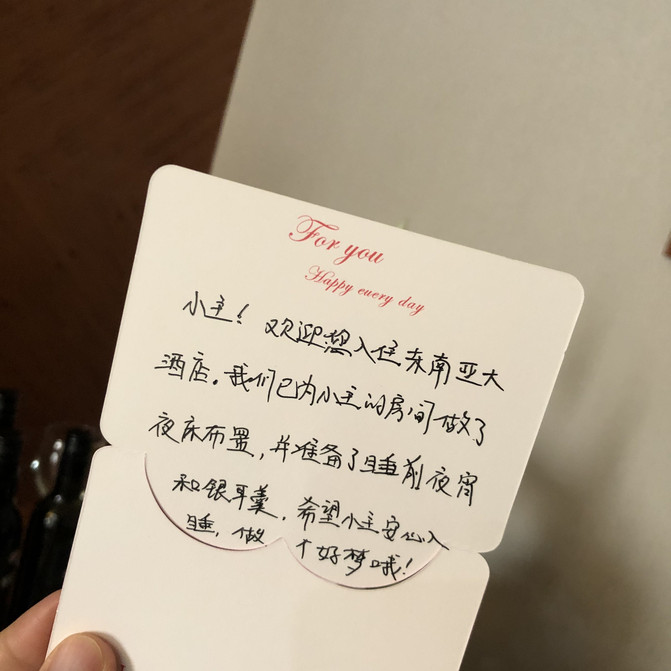 For you
Happy every day
小主！欢迎您入住东南亚大
酒店。我们已为小主的房间做了
夜床布置，并准备了睡前夜宵
和银耳羹，希望小主安心入
睡，做个好梦哦！